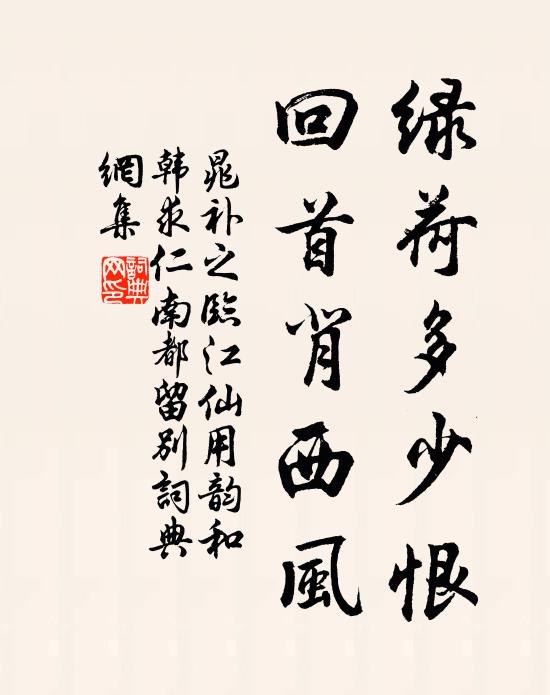 绿荷多少恨
回首背西風
晁补之臨江仙用韵和
韩求仁南都留別詞典
網集
詞典
网印